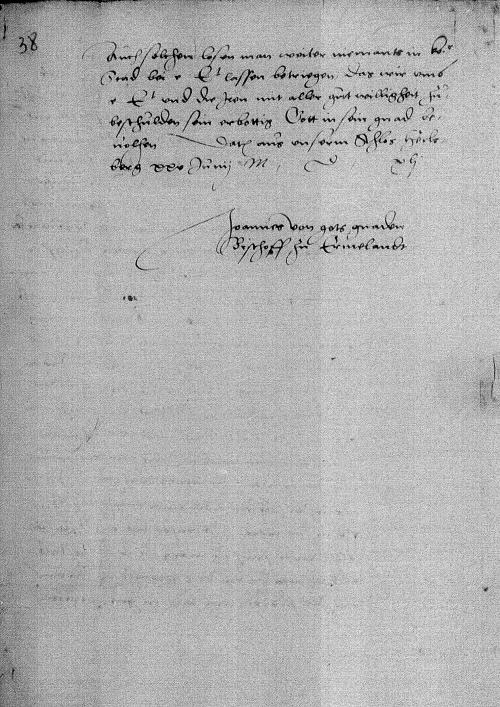 38
Auch solchen losen man weiter niemants in der
Stad bei e Et lassen betriegen Das wir umb
e Et und die Iren mit aller gutwilligkeit zu
beschulden sein erbottig Gott in sein gnad be-
volhen Datum aus unserm Schlos Heils-
berg xxv Junij M D xlj
Joannes von gots gnaden
Bischoff zu Ermelandt